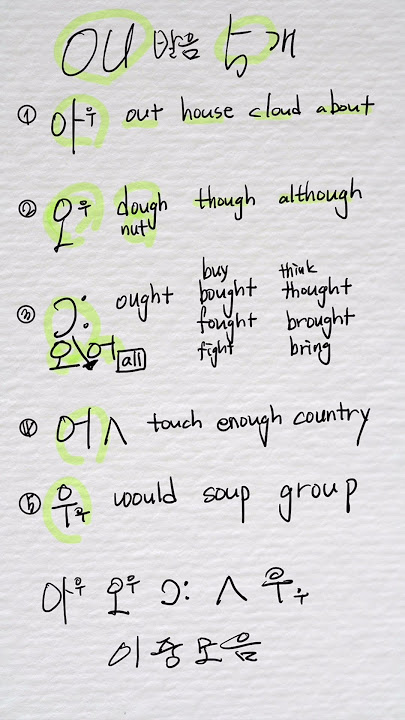 OU 발음 5개
① 아우 out house cloud about
② 오우 dough though although
nut
③ ɔ: ought buy think
bought thought
fought brought
오\어 all fight bring
④ 어 ʌ touch enough country
⑤ 우우 would soup group
아우 오우 ɔ: ʌ 우우
이중모음